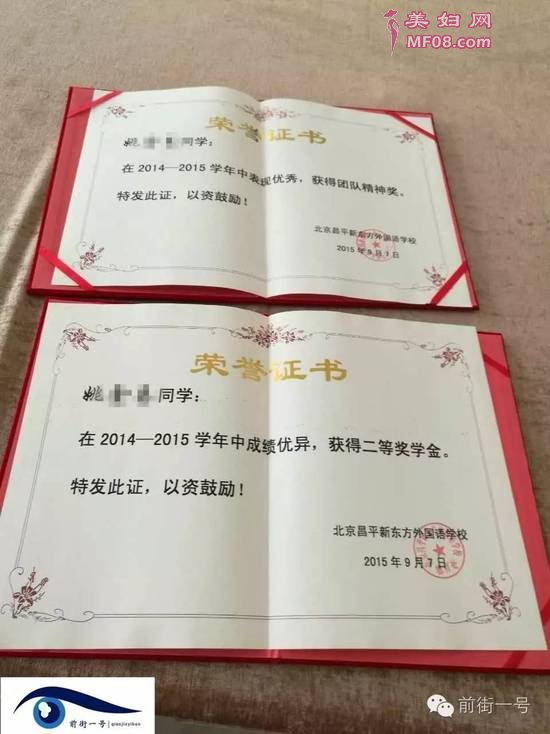 美妇网
MF08.com
荣誉证书
姚 同学：
在2014—2015学年中表现优秀，获得团队精神奖。
特发此证，以资鼓励！
北京昌平新东方外国语学校
2015年9月7日
荣誉证书
姚 同学：
在2014—2015学年中成绩优异，获得二等奖学金。
特发此证，以资鼓励！
北京昌平新东方外国语学校
2015年9月7日
前街一号 qianjieyihao
前街一号